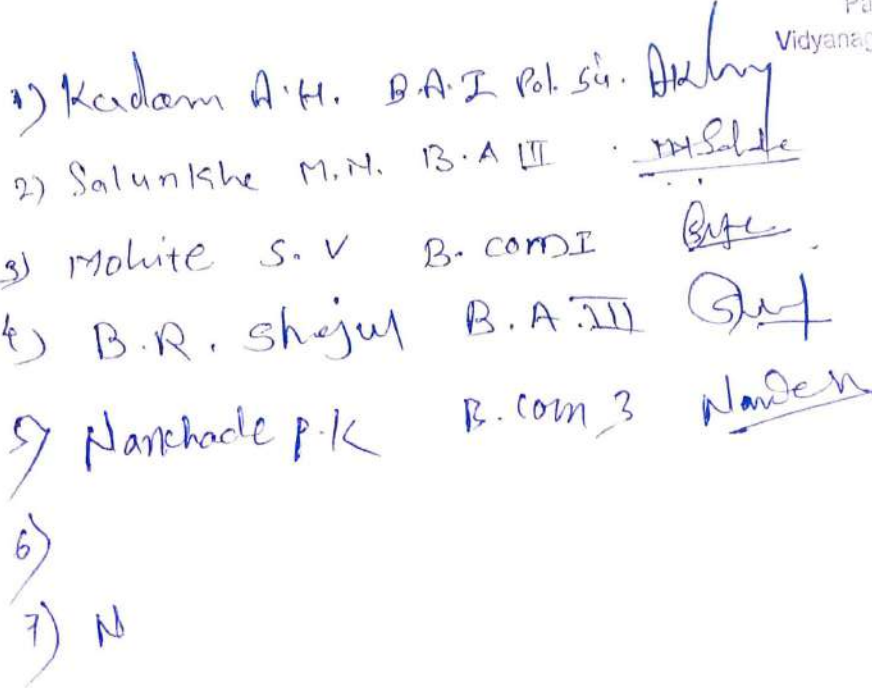 Pa
Vidyanag
1) Kadam A.H. B.A.I Pol. Sci.
2) Salunkhe M.N. B.A III
3) Mohite S.V B.com I
4) B.R. Shejul B.A.III
5) Nanchade P.K B.com 3
6)
7) N